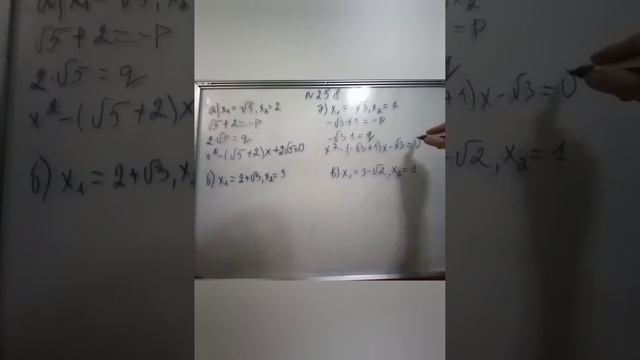 N 258
а) x₁ = √5, x₂ = 2
√5 + 2 = -p
2·√5 = q
x² - (√5 + 2)x + 2√5 = 0
б) x₁ = 2 + √3, x₂ = 3
x₁ = -√3, x₂ = 1
-√3 + 1 = -p
-√3·1 = q
x² - (-√3 + 1)x - √3 = 0
в) x₁ = 3 - √2, x₂ = 1